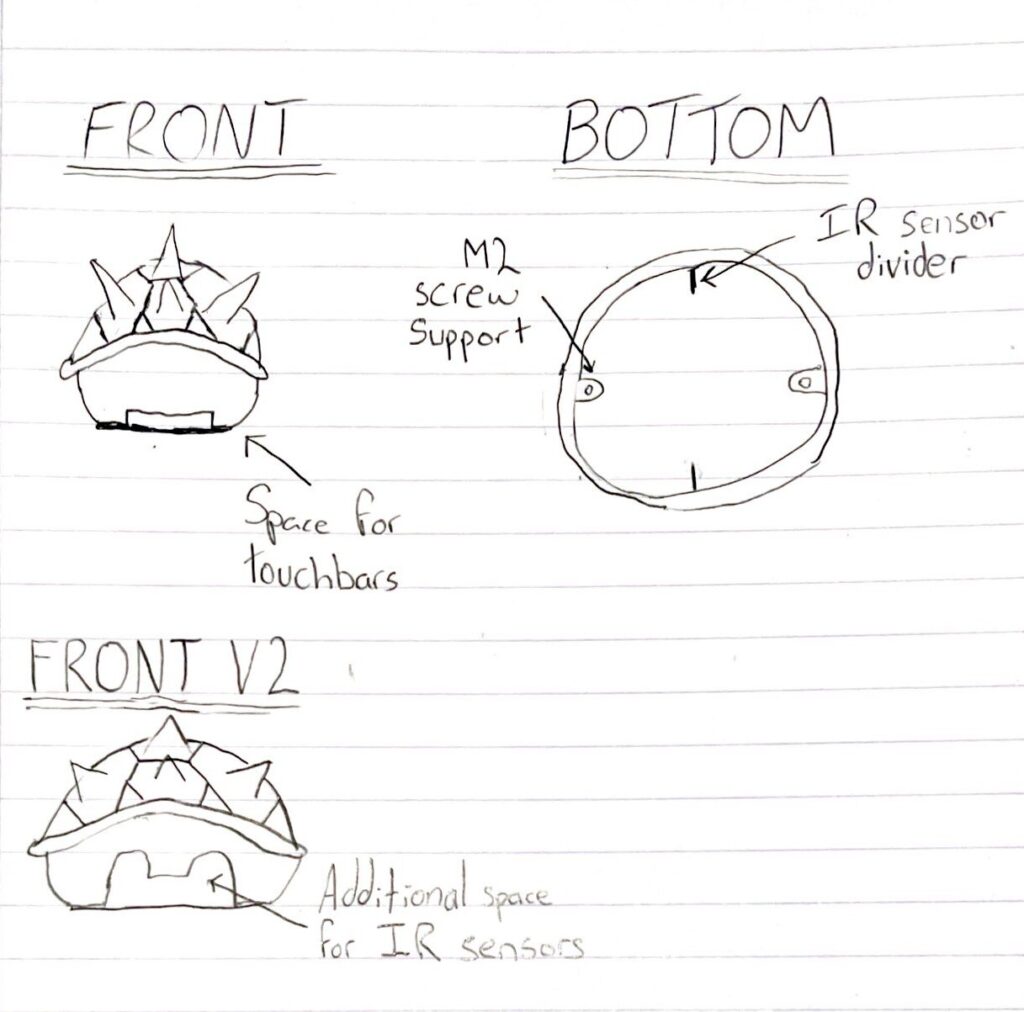 FRONT
BOTTOM
M2
screw
Support
IR sensor
divider
Space for
touchbars
FRONT V2
Additional space
for IR sensors